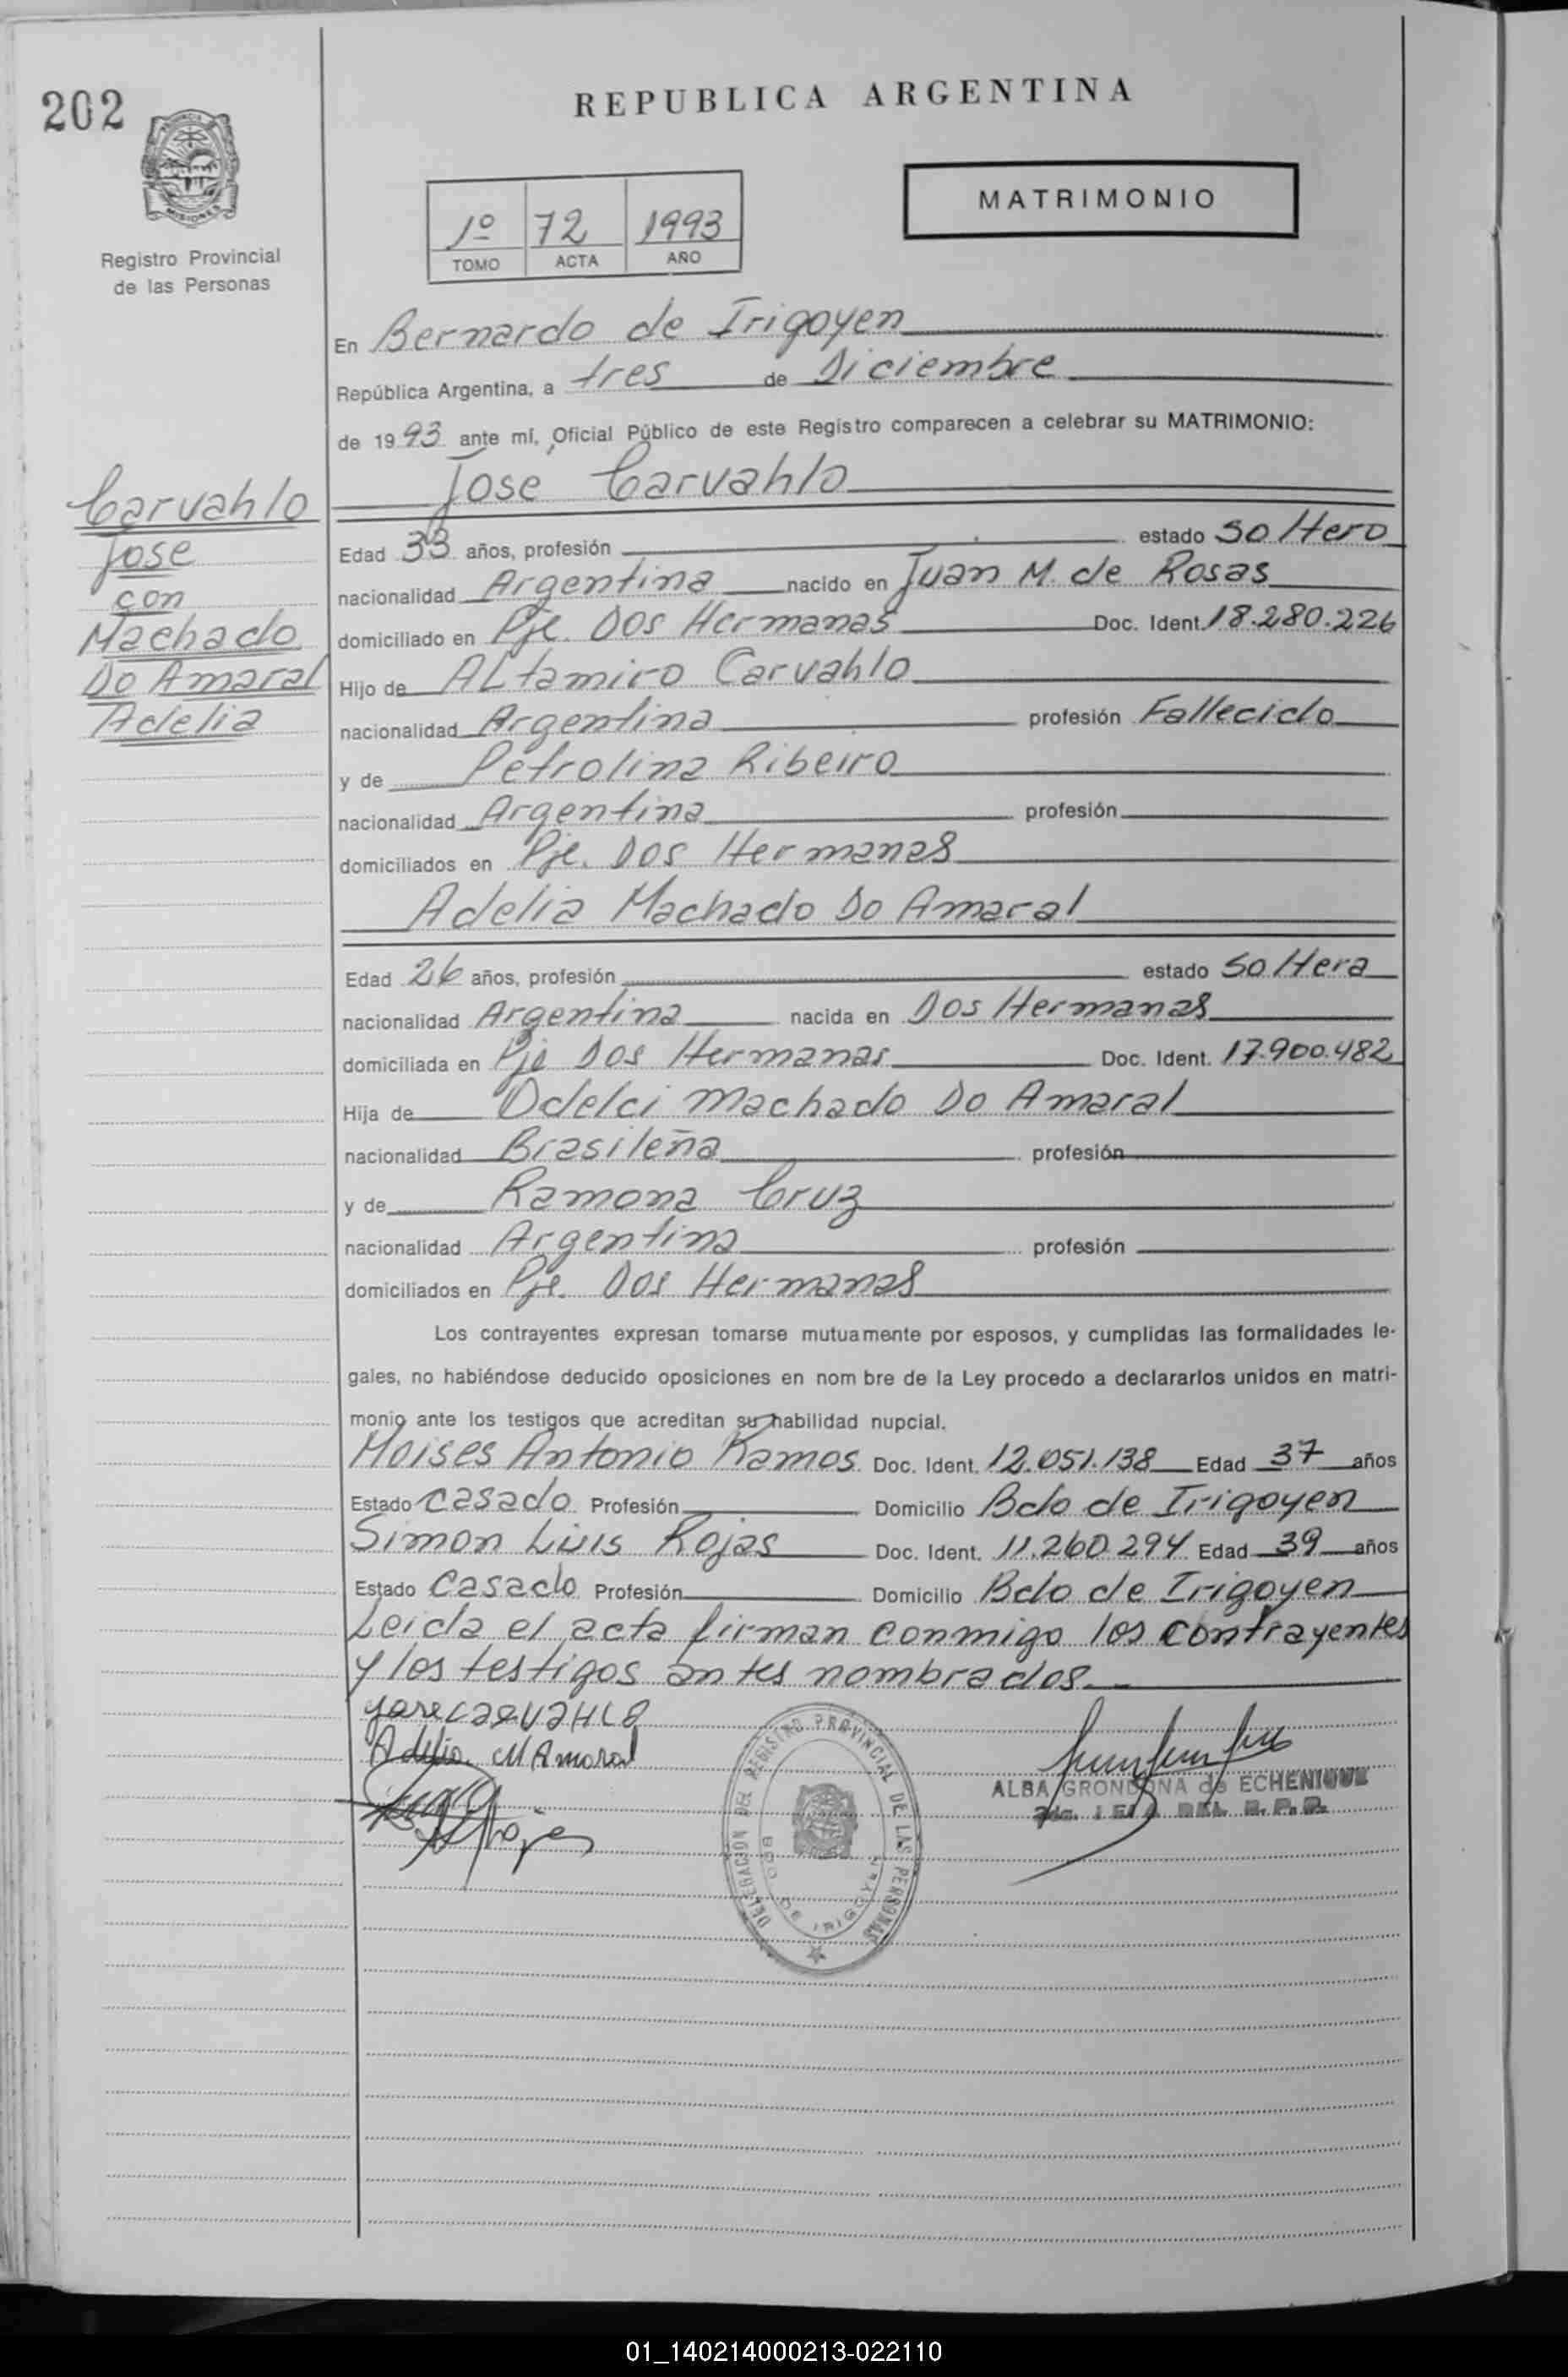 202
REPUBLICA ARGENTINA
PROVINCIA
MISIONES
Registro Provincial
de las Personas
1º 72 1993
TOMO ACTA AÑO
MATRIMONIO
En Bernardo de Irigoyen
República Argentina, a tres de Diciembre
de 1993 ante mí, Oficial Público de este Registro comparecen a celebrar su MATRIMONIO:
Jose Carvahlo
Carvahlo
Jose
con
Machado
Do Amaral
Adelia
Edad 33 años, profesión estado Soltero
nacionalidad Argentina nacido en Juan M. de Rosas
domiciliado en Pje. Dos Hermanas Doc. Ident. 18.280.226
Hijo de Altamiro Carvahlo
nacionalidad Argentina profesión Fallecido
y de Petrolina Ribeiro
nacionalidad Argentina profesión
domiciliados en Pje. Dos Hermanas
Adelia Machado Do Amaral
Edad 26 años, profesión estado Soltera
nacionalidad Argentina nacida en Dos Hermanas
domiciliada en Pje Dos Hermanas Doc. Ident. 17.900.482
Hija de Odelci Machado Do Amaral
nacionalidad Brasileña profesión
y de Ramona Cruz
nacionalidad Argentina profesión
domiciliados en Pje. Dos Hermanas
Los contrayentes expresan tomarse mutuamente por esposos, y cumplidas las formalidades le-
gales, no habiéndose deducido oposiciones en nom bre de la Ley procedo a declararlos unidos en matri-
monio ante los testigos que acreditan su habilidad nupcial.
Moises Antonio Ramos Doc. Ident. 12.051.138 Edad 37 años
Estado Casado Profesión Domicilio Bdo de Irigoyen
Simon Luis Rojas Doc. Ident. 11.260.294 Edad 39 años
Estado Casado Profesión Domicilio Bdo de Irigoyen
Leida el acta firman conmigo los contrayentes
y los testigos antes nombrados.
Jose CARVAHLO
Adelia M Amaral
Rojas
ALBA GRONDONA de ECHENIQUE
DELEGACION DEL REGISTRO PROVINCIAL DE LAS PERSONAS
BDO DE IRIGOYEN
01_140214000213-022110